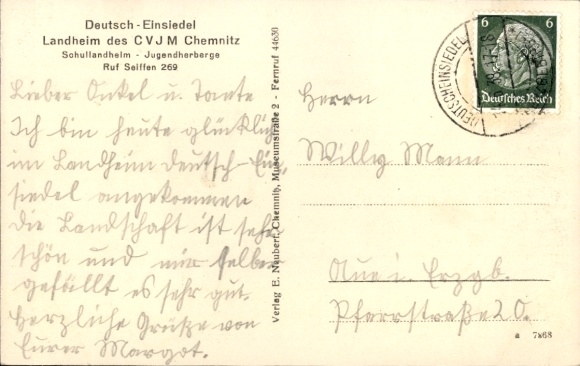 Deutsch-Einsiedel
Landheim des CVJM Chemnitz
Schullandheim - Jugendherberge
Ruf Seiffen 269
Lieber Onkel u. Tante
Ich bin heute glücklich
im Landheim Deutsch-Ein-
siedel angekommen
die Landschaft ist sehr
schön und mir selber
gefällt es sehr gut.
Herzliche Grüße von
Eurer Margot.
Verlag E. Neubert, Chemnitz, Museumstraße 2 - Fernruf 44630
6 6
Deutsches Reich
DEUTSCHEINSIEDEL
Herrn
Willy Mann
Aue i. Erzgb.
Pfarrstraße 20.
a 7868